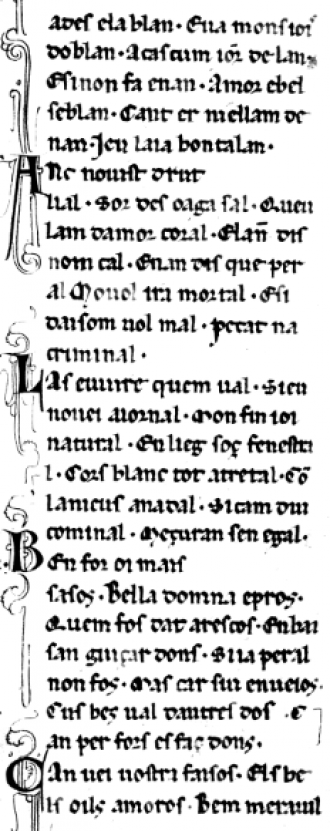 ades cla blan · Eua mons ioi
doblan · Acascum ior̄ de lan
Esinon fa enan · Amor ebel
seblan · Cant er niellam de
nan · Jeu laia bontalan ·
Anc nouist drut
lial · Sor des oaga sal · Queu
lam damor coral · Elan̄ dis
nom cal · Enan dis que per
al Mouol ira mortal · Esi
daisom uol mal · pecat na
criminal ·
Las euiure quem ual · Sieu
nouei aiornal · Mon fin ioi
natural · En lieg soç fenestri
l · Cors blanc tot atretal · Cō
la nieus anadal · Si cam dui
cominal · Meçuran sen egal ·
Ben for oi mais
sasos · Bella domna epros ·
Quem fos dat arescos · En bai
san guiçar dons · Si ia per al
non fos · Mas car sui enueios ·
Cus beç ual dautres dos · E
an per fors es faç dons ·
Can uei uostri faisos · Els be
ls oils amoros · Bem merauil